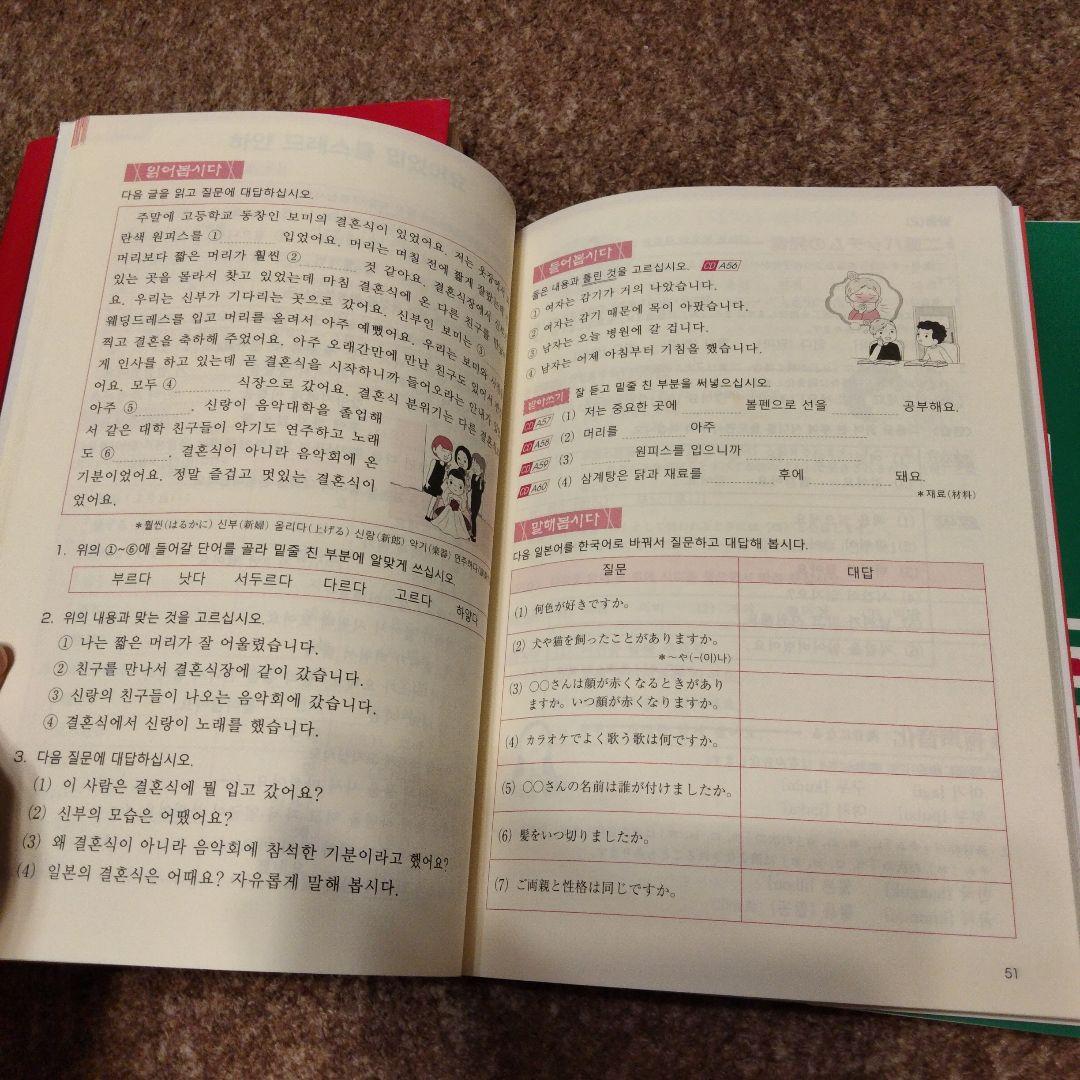 읽어봅시다
다음 글을 읽고 질문에 대답하십시오.
주말에 고등학교 동창인 보미의 결혼식이 있었어요. 저는 옷장에서
란색 원피스를 ① 입었어요. 머리는 며칠 전에 짧게 잘랐는데
머리보다 짧은 머리가 훨씬 ② 것 같아요. 결혼식장에서
있는 곳을 몰라서 찾고 있었는데 마침 결혼식에 온 다른 친구를
요. 우리는 신부가 기다리는 곳으로 갔어요. 신부인 보미는 ③
웨딩드레스를 입고 머리를 올려서 아주 예뻤어요. 우리는 보미와
찍고 결혼을 축하해 주었어요. 아주 오래간만에 만난 친구도 있어서
게 인사를 하고 있는데 곧 결혼식을 시작하니까 들어오라는 안내가
어요. 모두 ④ 식장으로 갔어요. 결혼식 분위기는 다른 결혼식
아주 ⑤ . 신랑이 음악대학을 졸업해
서 같은 대학 친구들이 악기도 연주하고 노래
도 ⑥ . 결혼식이 아니라 음악회에 온
기분이었어요. 정말 즐겁고 멋있는 결혼식이
었어요.
*훨씬(はるかに) 신부(新婦) 올리다(上げる) 신랑(新郎) 악기(楽器) 연주하다
1. 위의 ①~⑥에 들어갈 단어를 골라 밑줄 친 부분에 알맞게 쓰십시오.
부르다 낫다 서두르다 다르다 고르다 하얗다
2. 위의 내용과 맞는 것을 고르십시오.
① 나는 짧은 머리가 잘 어울렸습니다.
② 친구를 만나서 결혼식장에 같이 갔습니다.
③ 신랑의 친구들이 나오는 음악회에 갔습니다.
④ 결혼식에서 신랑이 노래를 했습니다.
3. 다음 질문에 대답하십시오.
(1) 이 사람은 결혼식에 뭘 입고 갔어요?
(2) 신부의 모습은 어땠어요?
(3) 왜 결혼식이 아니라 음악회에 참석한 기분이라고 했어요?
(4) 일본의 결혼식은 어때요? 자유롭게 말해 봅시다.
들어봅시다
들은 내용과 틀린 것을 고르십시오. CD A56
① 여자는 감기가 거의 나았습니다.
② 여자는 감기 때문에 목이 아팠습니다.
③ 남자는 오늘 병원에 갈 겁니다.
④ 남자는 어제 아침부터 기침을 했습니다.
받아쓰기 잘 듣고 밑줄 친 부분을 써넣으십시오.
CD A57 (1) 저는 중요한 곳에 볼펜으로 선을 공부해요.
CD A58 (2) 머리를 아주
CD A59 (3) 원피스를 입으니까
CD A60 (4) 삼계탕은 닭과 재료를 후에 돼요.
*재료(材料)
말해봅시다
다음 일본어를 한국어로 바꿔서 질문하고 대답해 봅시다.
질문 대답
(1) 何色が好きですか。
(2) 犬や猫を飼ったことがありますか。
*~や(-(이)나)
(3) 〇〇さんは顔が赤くなるときがあり
ますか。いつ顔が赤くなりますか。
(4) カラオケでよく歌う歌は何ですか。
(5) 〇〇さんの名前は誰が付けましたか。
(6) 髪をいつ切りましたか。
(7) ご両親と性格は同じですか。
51